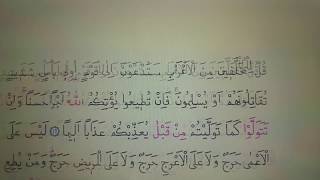 قُلْ لِلْمُخَلَّفِينَ مِنَ الْاَعْرَابِ سَتُدْعَوْنَ اِلٰى قَوْمٍ اُو۬لِي بَأْسٍ شَدِيدٍ
تُقَاتِلُونَهُمْ اَوْ يُسْلِمُونَۚ فَاِنْ تُطِيعُوا يُؤْتِكُمُ اللّٰهُ اَجْرًا حَسَنًاۚ وَاِنْ
تَتَوَلَّوْا كَمَا تَوَلَّيْتُمْ مِنْ قَبْلُ يُعَذِّبْكُمْ عَذَابًا اَلِيمًا ۝ لَيْسَ عَلَى
الْاَعْمٰى حَرَجٌ وَلَا عَلَى الْاَعْرَجِ حَرَجٌ وَلَا عَلَى الْمَرِيضِ حَرَجٌۜ وَمَنْ يُطِعِ